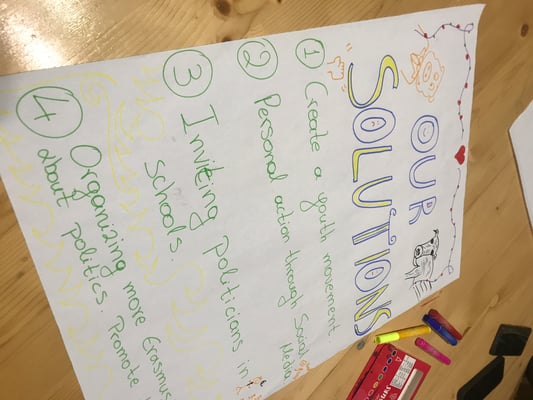 OUR
SOLUTIONS
1 Create a youth movement.
2 Personal action through Social
Media
3 Inviting politicians in
schools.
4 Organizing more Erasmus
about politics. Promote